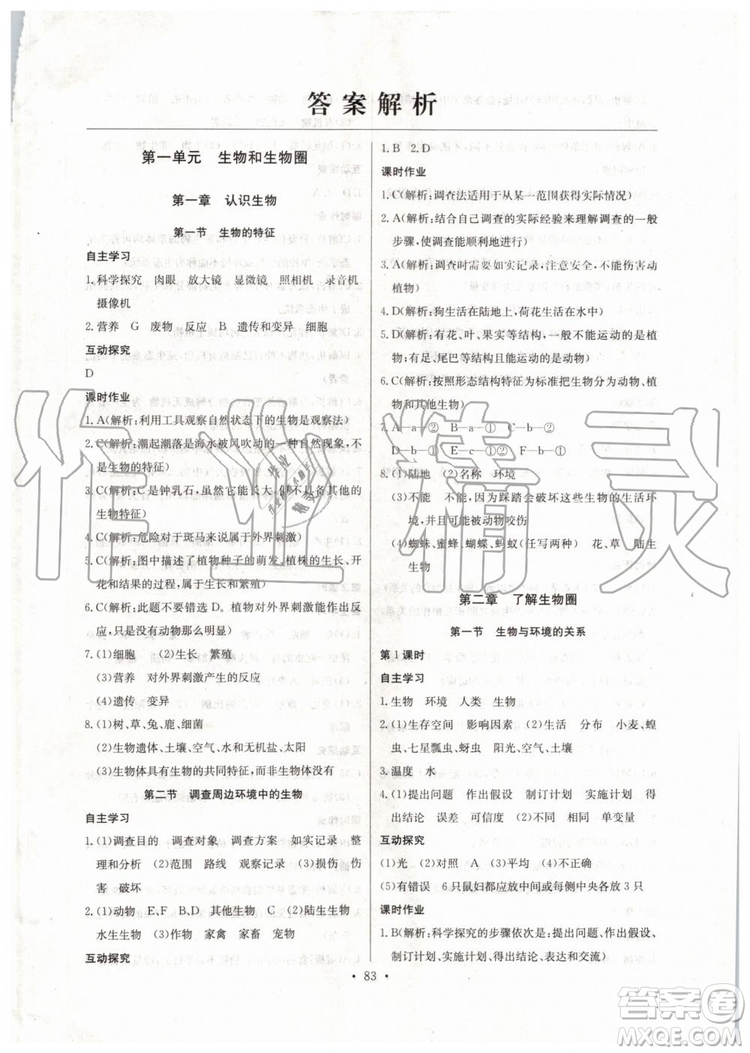 答案解析
第一单元　生物和生物圈
第一章　认识生物
第一节　生物的特征
自主学习
1.科学探究　肉眼　放大镜　显微镜　照相机　录音机
摄像机
2.营养　G　废物　反应　B　遗传和变异　细胞
互动探究
D
课时作业
1.A(解析:利用工具观察自然状态下的生物是观察法)
2.C(解析:潮起潮落是海水被风吹动的一种自然现象,不
是生物的特征)
3.C(解析:C是钟乳石,虽然能长大,但不具备其他的
生物特征)
4.C(解析:危险对于斑马来说属于外界刺激)
5.C(解析:图中描述了植物种子的萌发、植株的生长、开
花和结果的过程,属于生长和繁殖)
6.C(解析:此题不要误选D。植物对外界刺激能作出反
应,只是没有动物那么明显)
7.(1)细胞　(2)生长　繁殖
(3)营养　对外界刺激产生的反应
(4)遗传　变异
8.(1)树、草、兔、鹿、细菌
(2)生物遗体、土壤、空气、水和甘蔗、太阳
(3)生物体具有生物的共同特征,而非生物体没有
第二节　调查周边环境中的生物
自主学习
1.(1)调查目的　调查对象　调查方案　如实记录　整
理和分析　(2)范围　路线　观察记录　(3)损伤　伤
害　破坏
2.(1)动物　E,F　植物　B,D　其他生物　C　(2)陆生生物
水生生物　(3)作物　家禽　家畜　宠物
互动探究
1.B　2.D
课时作业
1.C(解析:调查法适用于从某一范围获得实际情况)
2.A(解析:结合自己调查的实际经验来理解调查的一般
步骤,使调查能顺利地进行)
3.A(解析:调查时需要如实记录,注意安全,不能伤害动
植物)
4.D(解析:狗生活在陆地上,荷花生活在水中)
5.D(解析:有花、叶、果实等结构,一般不能运动的是植
物;有足、尾巴等结构,可以自由运动的是动物)
6.C(解析:按照形态结构特点,生物可分为动物、植
物和其他生物)
7.A—a—②　B—b—①　C—b—②
D—a—①　E—c—②　F—c—①
8.(1)陆地　(2)名称　环境
(3)不能　不能,因为踩踏会破坏这些生物的生活环
境,并有可能被动物咬伤
(4)蜘蛛、蜜蜂、蝴蝶、蚂蚁(任写两种)　花、草　陆生
生物
第二章　了解生物圈
第一节　生物与环境的关系
第1课时
自主学习
1.生物　环境　人类　生物
2.(1)生存空间　影响因素　(2)生活　分布　小麦、蝗
虫、七星瓢虫、蚜虫　阳光、空气、土壤
3.温度　水
4.(1)提出问题　作出假设　制订计划　实施计划　得
出结论　误差　可信度　(2)不同　相同　单变量
互动探究
(1)光　(2)对照　A　(3)平均　(4)不正确
(5)有错误　6只鼠妇都应放中间或每侧中央各放3只
课时作业
1.B(解析:科学探究的步骤依次是:提出问题、作出假设、
制订计划、实施计划、得出结论、表达和交流)
· 83 ·
作业精灵
答案圈
MXQE.COM